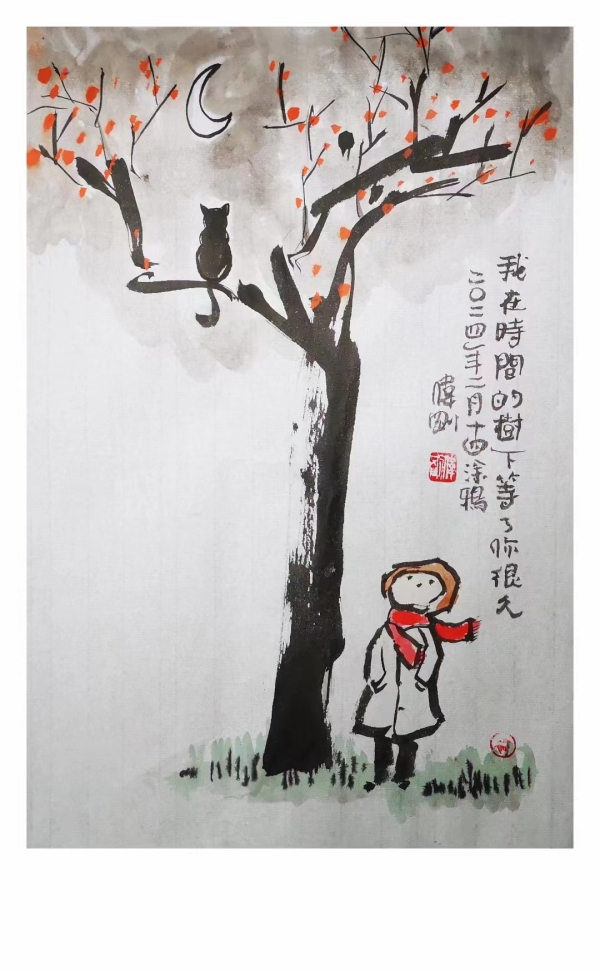 我在時間的樹下等了你很久
二〇二四年二月十四涂鴉
偉剛